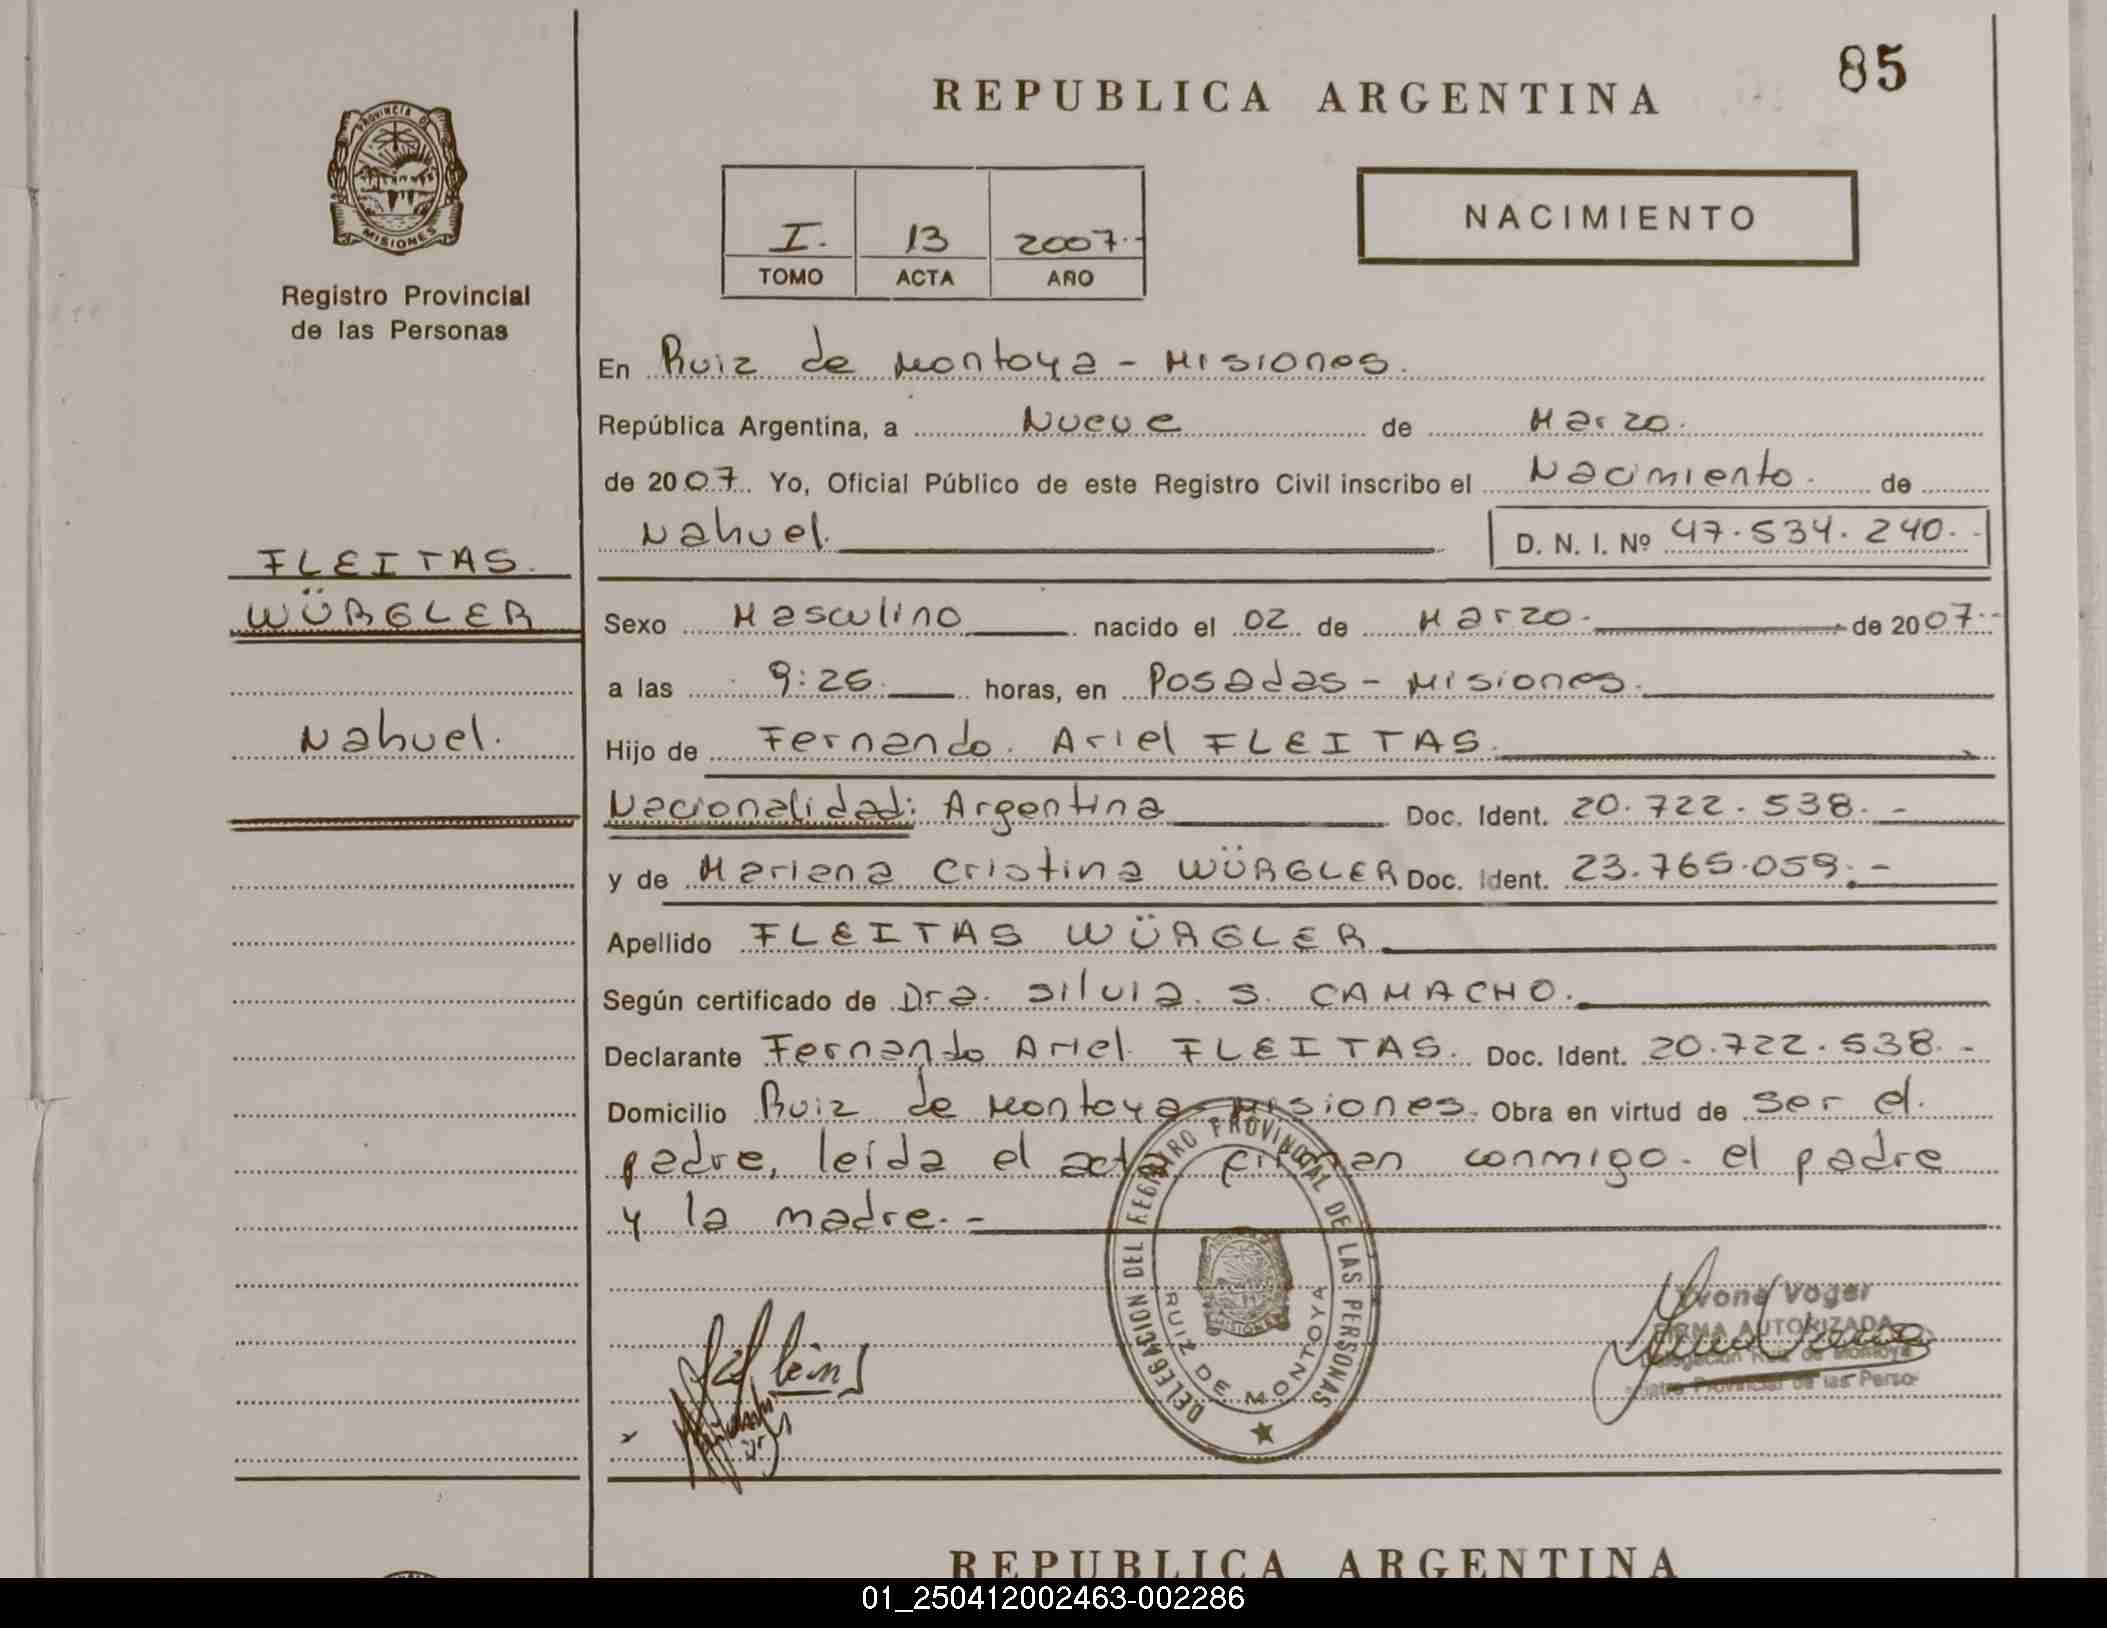 85
REPUBLICA ARGENTINA
PROVINCIA DE
MISIONES
Registro Provincial
de las Personas
I. 13 2007.-
TOMO ACTA AÑO
NACIMIENTO
En Ruiz de Montoya - Misiones.
República Argentina, a Nueve de Marzo.
de 2007. Yo, Oficial Público de este Registro Civil inscribo el Nacimiento. de
Nahuel. D. N. I. Nº 47.534.240.-
FLEITAS.
WÜRGLER
Nahuel.
Sexo Masculino nacido el 02 de Marzo. de 2007.-
a las 9:25 horas, en Posadas - Misiones.
Hijo de Fernando. Ariel FLEITAS.
Nacionalidad: Argentina Doc. Ident. 20.722.538.-
y de Mariana Cristina WÜRGLER Doc. Ident. 23.765.059.-
Apellido FLEITAS WÜRGLER
Según certificado de Dra. Silvia. S. CAMACHO.
Declarante Fernando Ariel FLEITAS. Doc. Ident. 20.722.538.-
Domicilio Ruiz de Montoya - Misiones. Obra en virtud de ser el
padre, leída el acta firman conmigo. el padre
y la madre.-
DELEGACION DEL REGISTRO PROVINCIAL DE LAS PERSONAS
RUIZ DE MONTOYA
MISIONES
Yvone Voger
FIRMA AUTORIZADA
Delegación Ruiz de Montoya
Provincial de las Perso-
REPUBLICA ARGENTINA
01_250412002463-002286